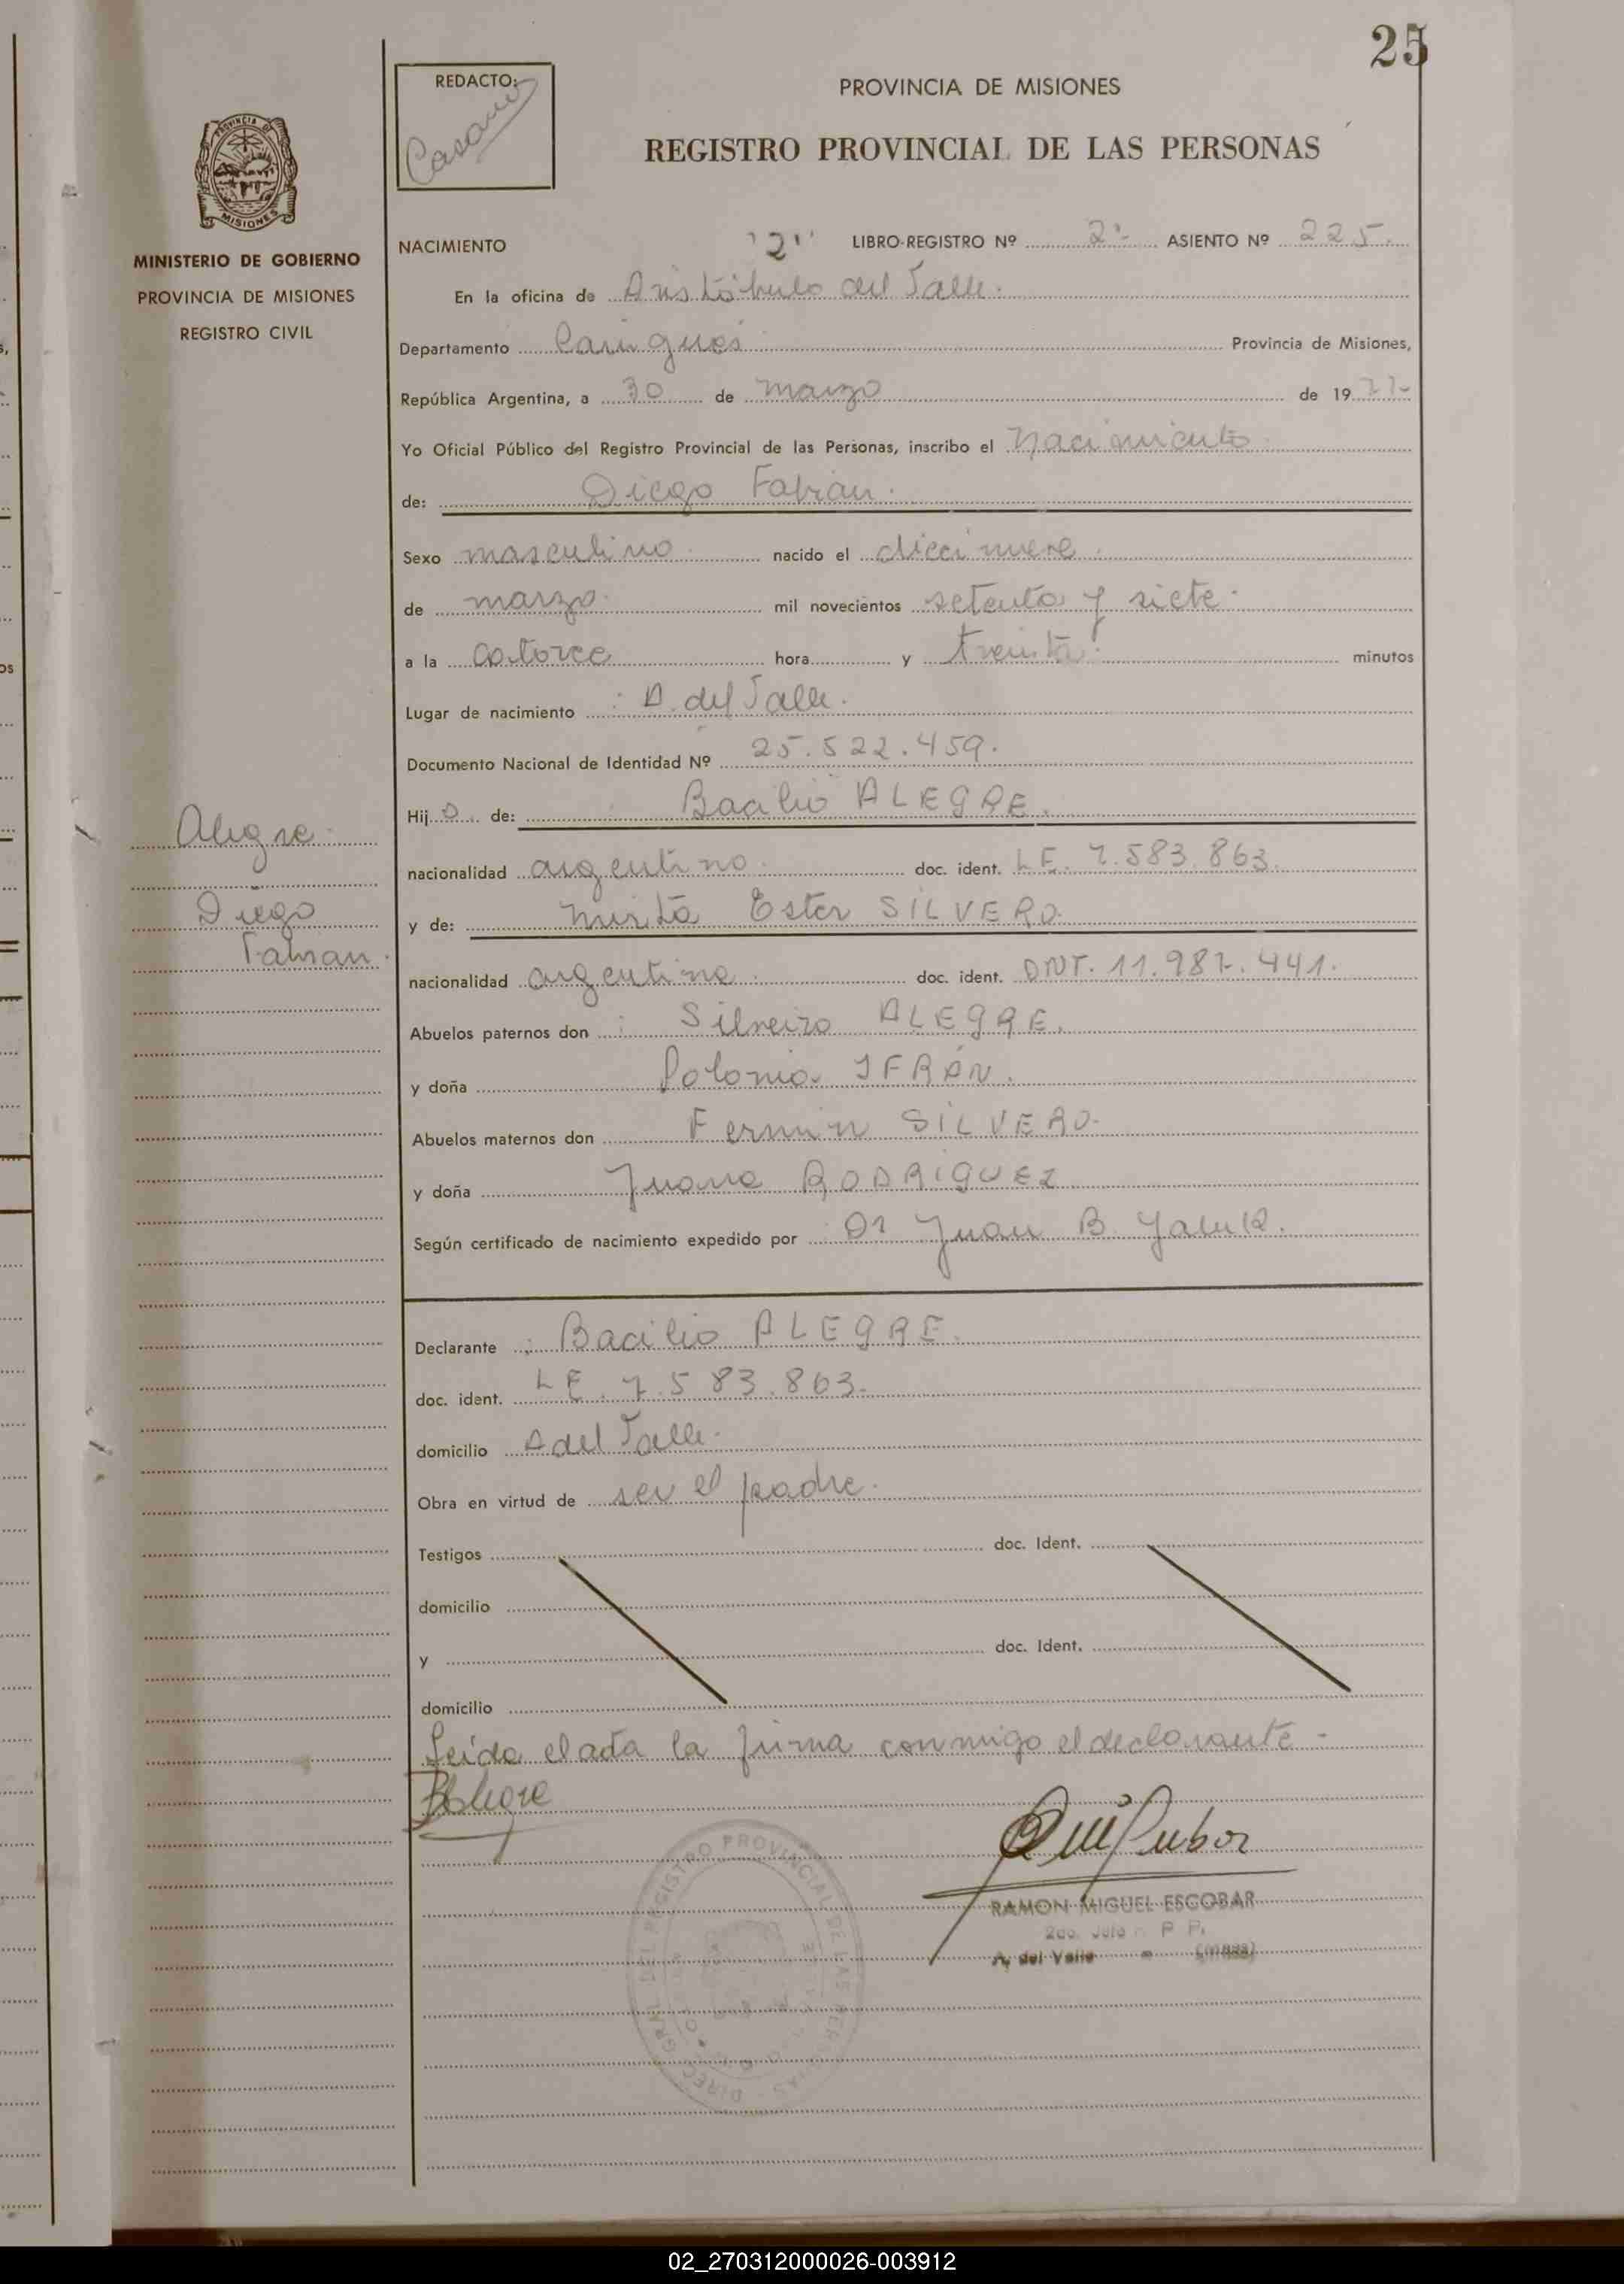 25
REDACTO:
PROVINCIA DE MISIONES
REGISTRO PROVINCIAL DE LAS PERSONAS
PROVINCIA DE
MISIONES
MINISTERIO DE GOBIERNO
PROVINCIA DE MISIONES
REGISTRO CIVIL
NACIMIENTO "2" LIBRO-REGISTRO Nº 2º- ASIENTO Nº 225.
En la oficina de Aristóbulo del Valle.
Departamento Cainguás Provincia de Misiones,
República Argentina, a 30 de marzo de 1977-
Yo Oficial Público del Registro Provincial de las Personas, inscribo el Nacimiento
de: Diego Fabian.
Sexo masculino. nacido el diecinueve.
de marzo. mil novecientos setenta y siete.
a la catorce hora y treinta. minutos
Lugar de nacimiento : A. del Valle.
Documento Nacional de Identidad Nº 25.522.459.
Hijo. de: Bacilio ALEGRE.
nacionalidad argentino. doc. ident. LE. 7.583.863.
y de: Mirta Ester SILVERO.
nacionalidad argentina. doc. ident. DNI. 11.987.441.
Alegre.
Diego
Fabian.
Abuelos paternos don : Silveiro ALEGRE.
y doña Polonia IFRÁN.
Abuelos maternos don Fermin SILVERO.
y doña Juana RODRIGUEZ
Según certificado de nacimiento expedido por : Dr Juan B.
Declarante : Bacilio ALEGRE.
doc. ident. LE. 7.583.863.
domicilio A del Valle.
Obra en virtud de ser el padre.
Testigos doc. Ident.
domicilio
y doc. Ident.
domicilio
Leida el acta la firma conmigo el declarante -
BAlegre
RAMON MIGUEL ESCOBAR
A. del Valle - (Mnes)
DIREC. GRAL. DEL REGISTRO PROVINCIAL DE LAS PERSONAS
02_270312000026-003912